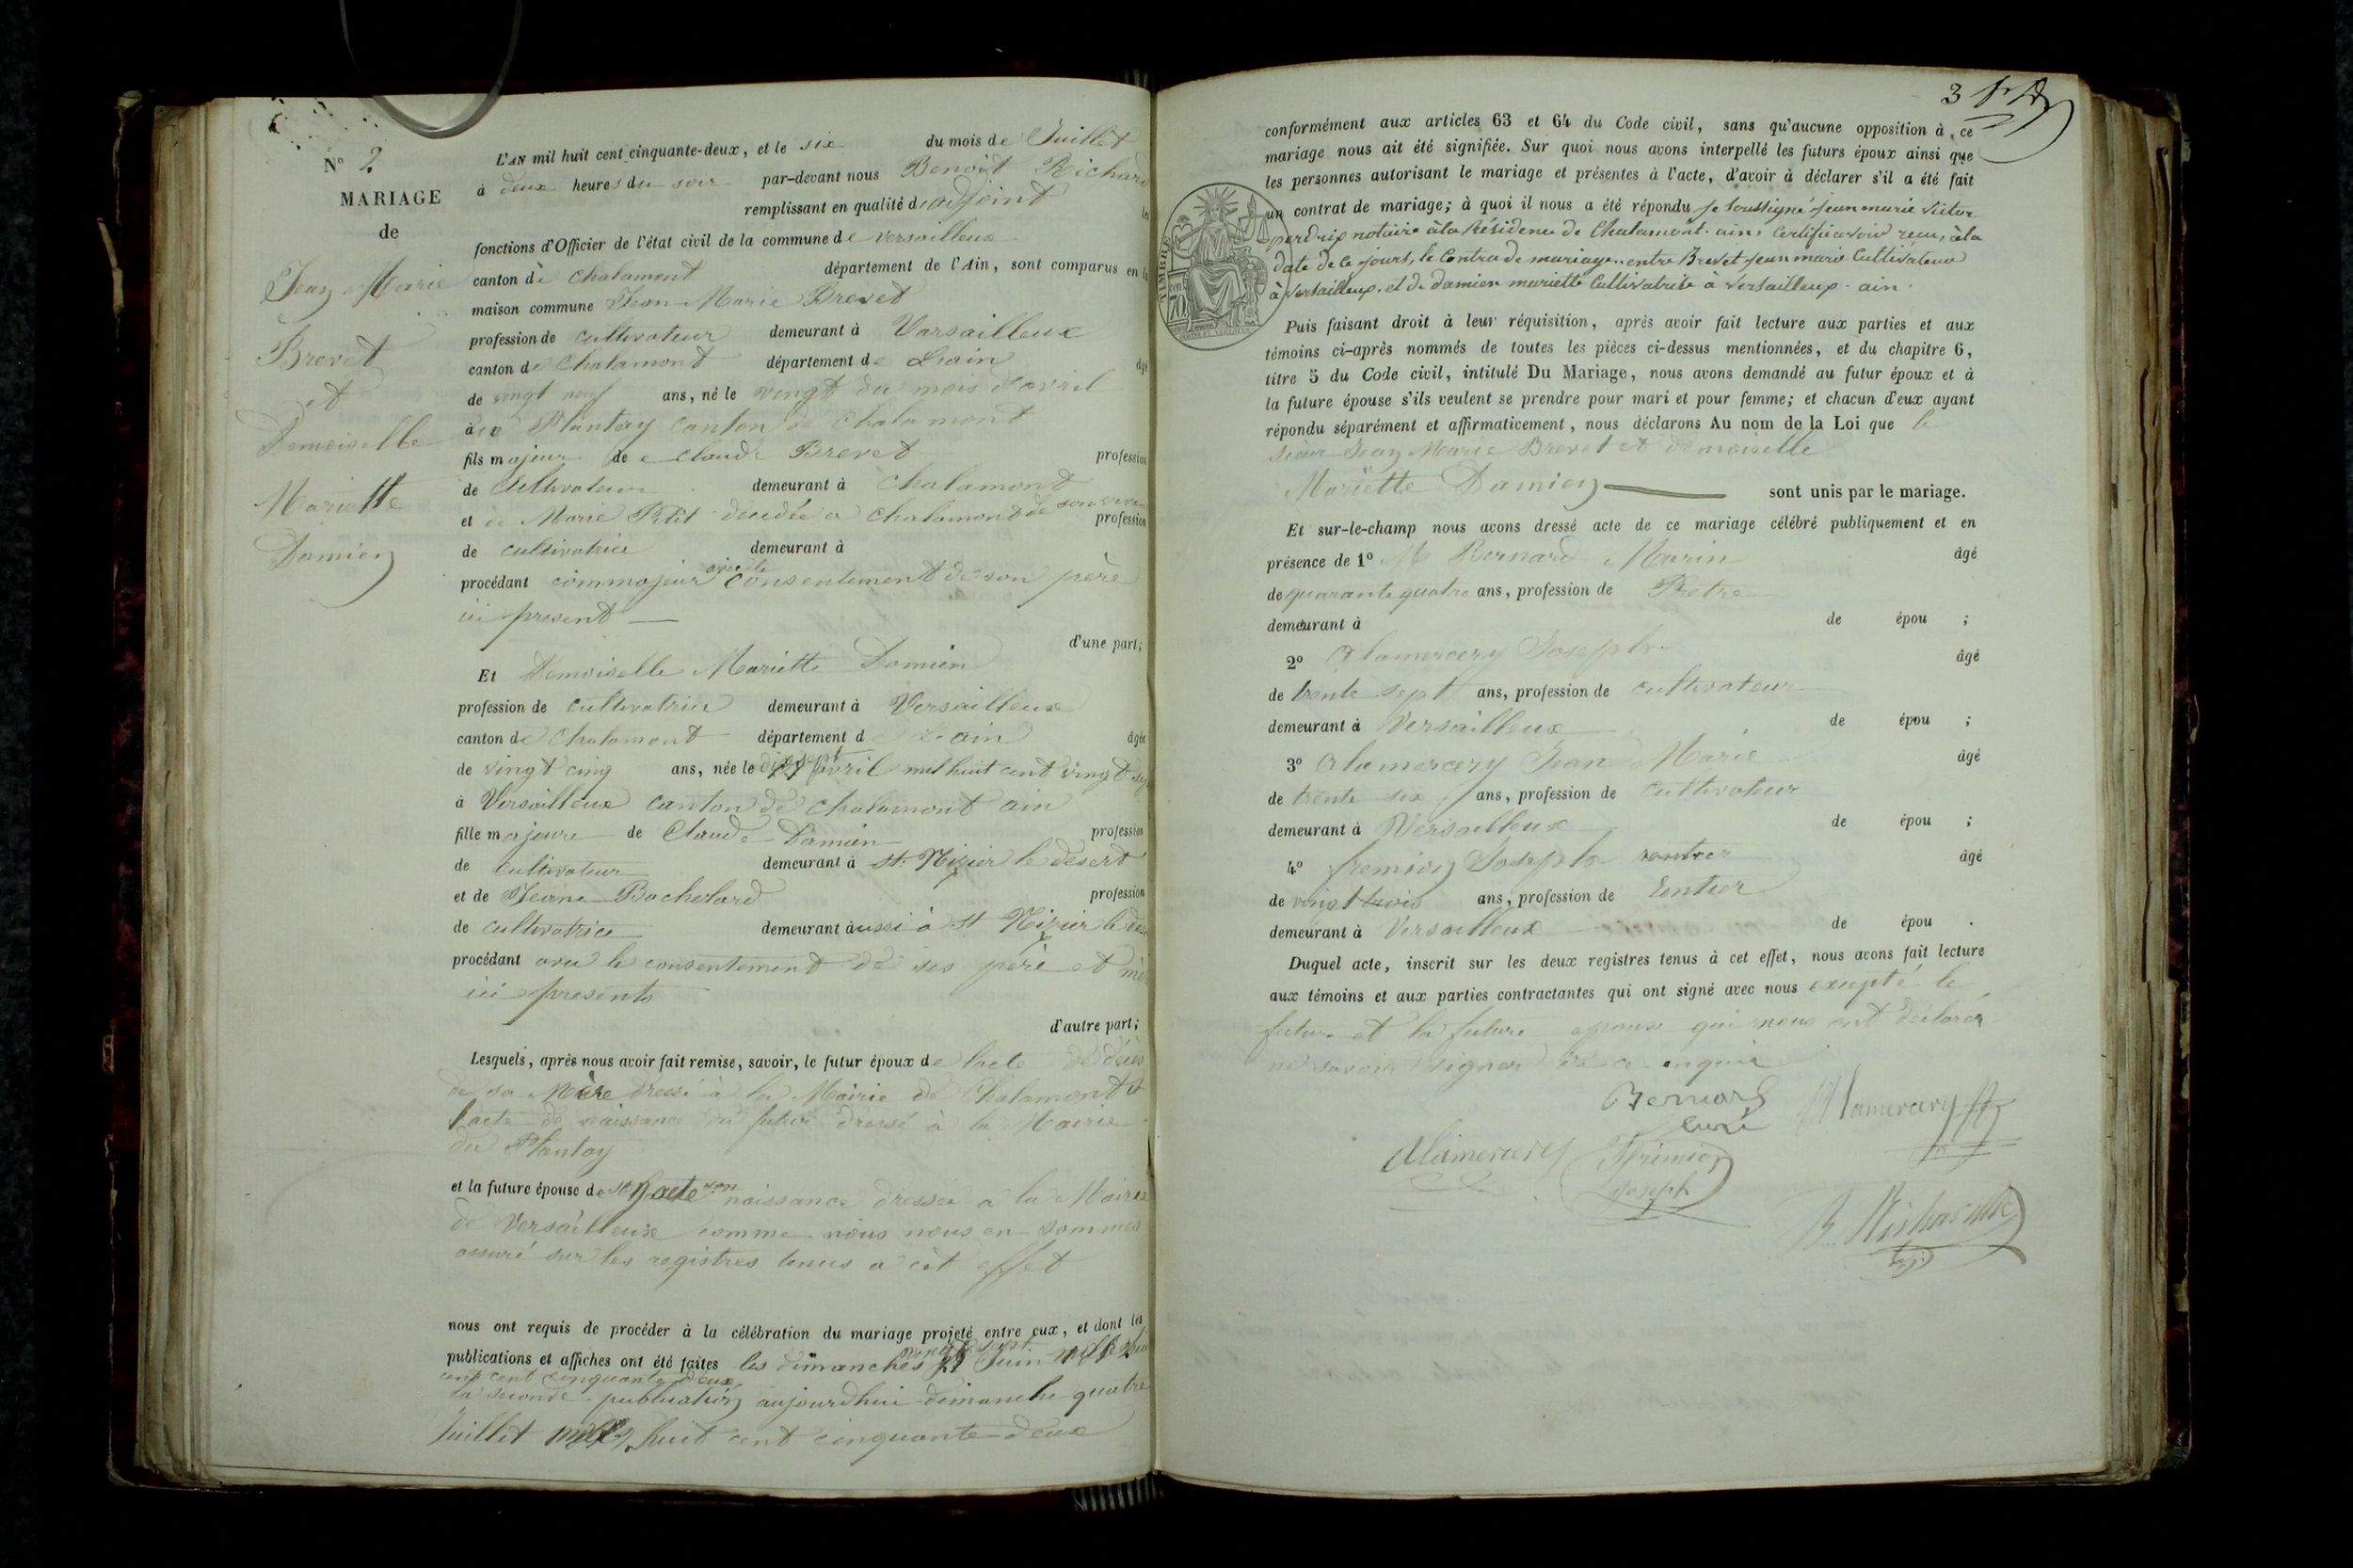 N° 2
MARIAGE
de
Jean Marie
Brevet
et
Demoiselle
Mariette
Damien
L'AN mil huit cent cinquante-deux, et le six du mois de Juillet
à deux heures du soir par-devant nous Benoit Richard
remplissant en qualité d'adjoint les
fonctions d'Officier de l'état civil de la commune de Versailleux
canton de Chalamont département de l'Ain, sont comparus en la
maison commune Jean Marie Brevet
profession de cultivateur demeurant à Versailleux
canton de Chalamont département de Lain âgé
de vingt neuf ans, né le vingt du mois d'avril
à Plantay canton de Chalamont
fils majeur de Claude Brevet profession
de Cultivateur demeurant à Chalamont
et de Marie Petit décédée a Chalamont de son vivant profession
de cultivatrice demeurant à
procédant commajeur avec le consentement de son père
ici present
d'une part;
Et Demoiselle Mariette Damien
profession de cultivatrice demeurant à Versailleux
canton de Chalamont département de ain âgée
de vingt cinq ans, née le dix sept avril mil huit cent vingt sept
à Versailleux canton de Chalamont ain
fille majeure de Claude Damien profession
de cultivateur demeurant à St Nizier le desert
et de Jeane Bachelard profession
de cultivatrice demeurant aussi à St Nizier le
procédant avec le consentement de ses père et mère
ici presents
d'autre part;
Lesquels, après nous avoir fait remise, savoir, le futur époux de lacte de décès
de sa Mère dressé à la Mairie de Chalamont et
l'acte de naissance du futur dressé à la Mairie
du Plantay
et la future épouse de l'acte son naissance dressee a la Mairie
de Versailleux comme nous nous en sommes
assuré sur les registres tenus a cet effet
nous ont requis de procéder à la célébration du mariage projeté entre eux, et dont les
publications et affiches ont été faites les dimanches vingt sept Juin mille huit
cent cinquante deux
la seconde publication aujourdhui dimanche quatre
Juillet huit cent cinquante deux
3
conformément aux articles 63 et 64 du Code civil, sans qu'aucune opposition à ce
mariage nous ait été signifiée. Sur quoi nous avons interpellé les futurs époux ainsi que
les personnes autorisant le mariage et présentes à l'acte, d'avoir à déclarer s'il a été fait
un contrat de mariage; à quoi il nous a été répondu je soussigné Jean marie Victor
perdrix notaire à la Résidence de Chalamont ain, Certifie avoir reçu, à la
date de ce jour, le Contra de mariage entre Brevet jean marie Cultivateur
à Versailleux et de damien mariette Cultivatrice à Versailleux ain
TIMBRE
70
Puis faisant droit à leur réquisition, après avoir fait lecture aux parties et aux
témoins ci-après nommés de toutes les pièces ci-dessus mentionnées, et du chapitre 6,
titre 5 du Code civil, intitulé Du Mariage, nous avons demandé au futur époux et à
la future épouse s'ils veulent se prendre pour mari et pour femme; et chacun d'eux ayant
répondu séparément et affirmativement, nous déclarons Au nom de la Loi que le
sieur Jean Marie Brevet et demoiselle
Mariette Damien sont unis par le mariage.
Et sur-le-champ nous avons dressé acte de ce mariage célébré publiquement et en
présence de 1° M Bernard Marin âgé
de quarante quatre ans, profession de Pretre
demeurant à de épou ;
2° Alamercery Joseph âgé
de trente sept ans, profession de cultivateur
demeurant à Versailleux de épou ;
3° Alamercery Jean Marie âgé
de trente six ans, profession de cultivateur
demeurant à Versailleux de épou ;
4° fremion Joseph rentier âgé
de vingt trois ans, profession de Rentier
demeurant à Versailleux de épou .
Duquel acte, inscrit sur les deux registres tenus à cet effet, nous avons fait lecture
aux témoins et aux parties contractantes qui ont signé avec nous excepté le
futur et la future epouse qui nous ont déclarés
ne savoir signer de ce enquis
Bernard
curé
Alamercery
Alamercery
fremion
Joseph
B. Richard